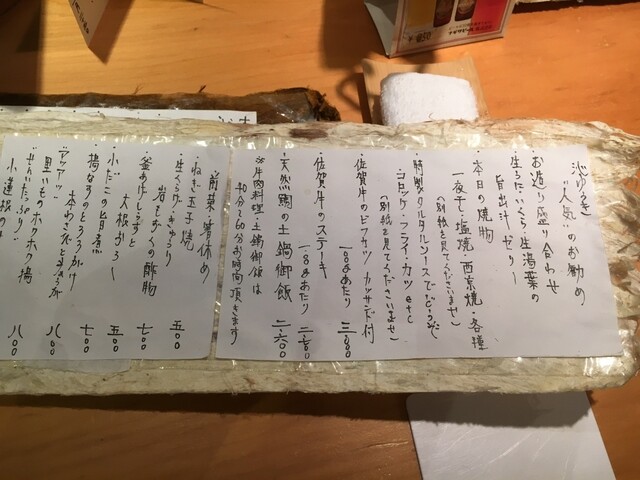 "人気"のお勧め
お造り盛り合わせ
生うに・いくら・生湯葉の
旨出汁ゼリー
・本日の焼物
一夜干し・塩焼・西京焼・各種
(別紙を見てくださいませ)
・特製タルタルソースでどうぞ
コロッケ・フライ・カツetc
(別紙を見てくださいませ)
・佐賀牛のビフカツ カツサンド付
100gあたり 三一〇〇
・佐賀牛のステーキ
100gあたり
・天然鶏の土鍋御飯 二六〇〇
※牛肉料理・土鍋御飯は
40分〜60分お時間頂きます
前菜・箸休め
・ねぎ玉子焼 五〇〇
・生くらげ・きゅうり
岩もずくの酢物 七〇〇
・釜あげしらすと
大根おろし 五〇〇
・小だこの旨煮 七〇〇
・揚なすのとろろがけ
"アツアツ" 八〇〇
・里いものホクホク揚
八〇〇